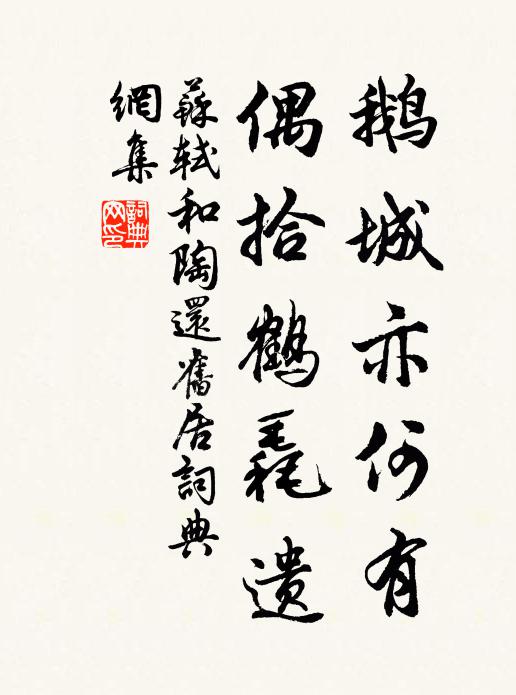 鹅城亦何有
偶拾鹤毳遗
蘇軾和陶還舊居詞典
網集
詞典
网印